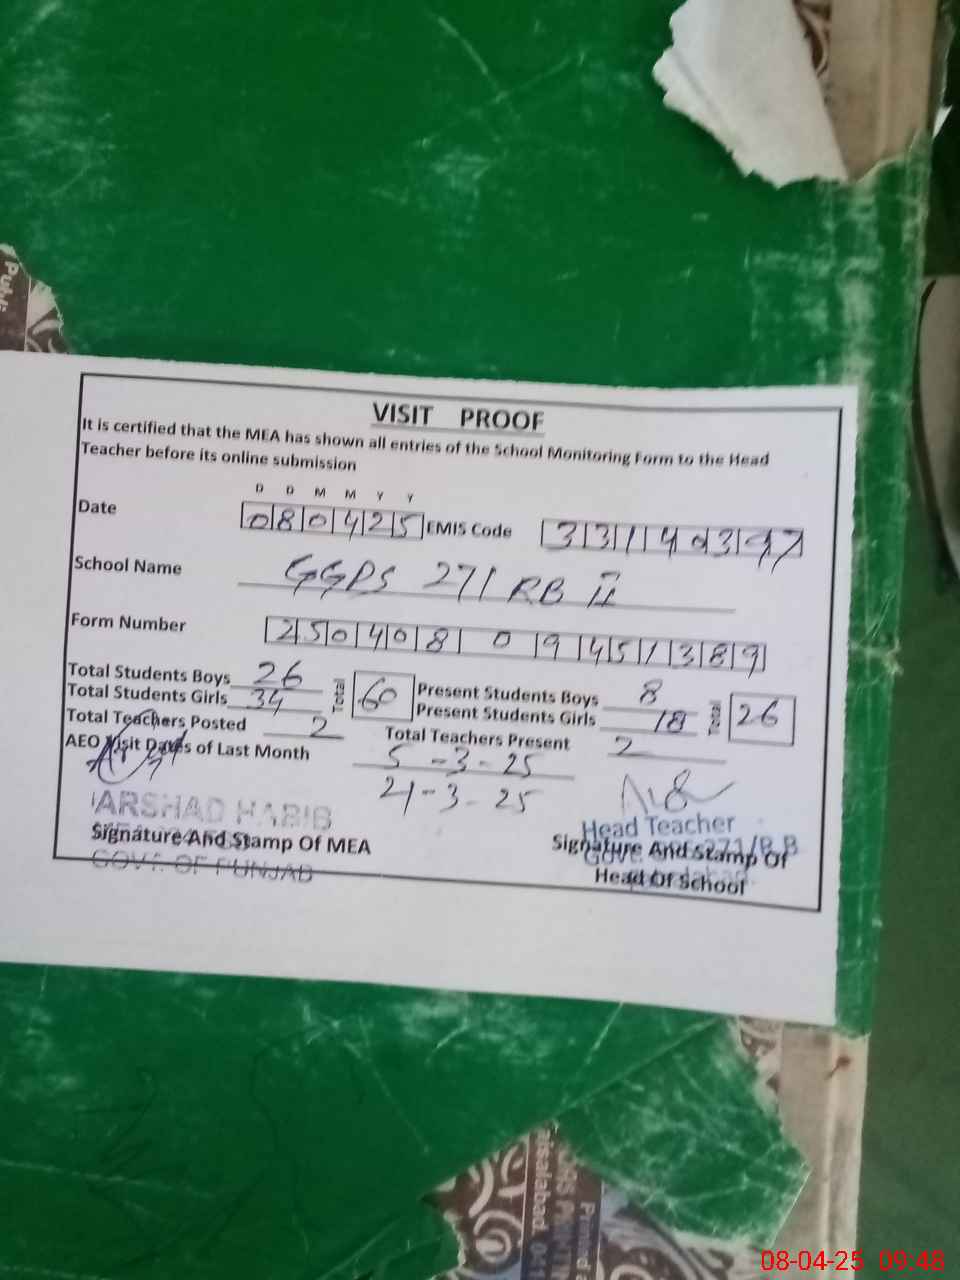 VISIT PROOF
It is certified that the MEA has shown all entries of the School Monitoring Form to the Head
Teacher before its online submission
D D M M Y Y
Date 080425 EMIS Code 33140397
School Name GGPS 271 RB II
Form Number 250408 0 9451389
Total Students Boys 26 Total 60 Present Students Boys 8 Total 26
Total Students Girls 34 Present Students Girls 18
Total Teachers Posted 2 Total Teachers Present 2
AEO Visit Dates of Last Month 5-3-25
21-3-25
ARSHAD HABIB
Signature And Stamp Of MEA
GOVT. OF PUNJAB
Head Teacher
271/R.B
Signature And Stamp Of
Head Of School
Publi
Printed
aisalabad. 041
08-04-25 09:48